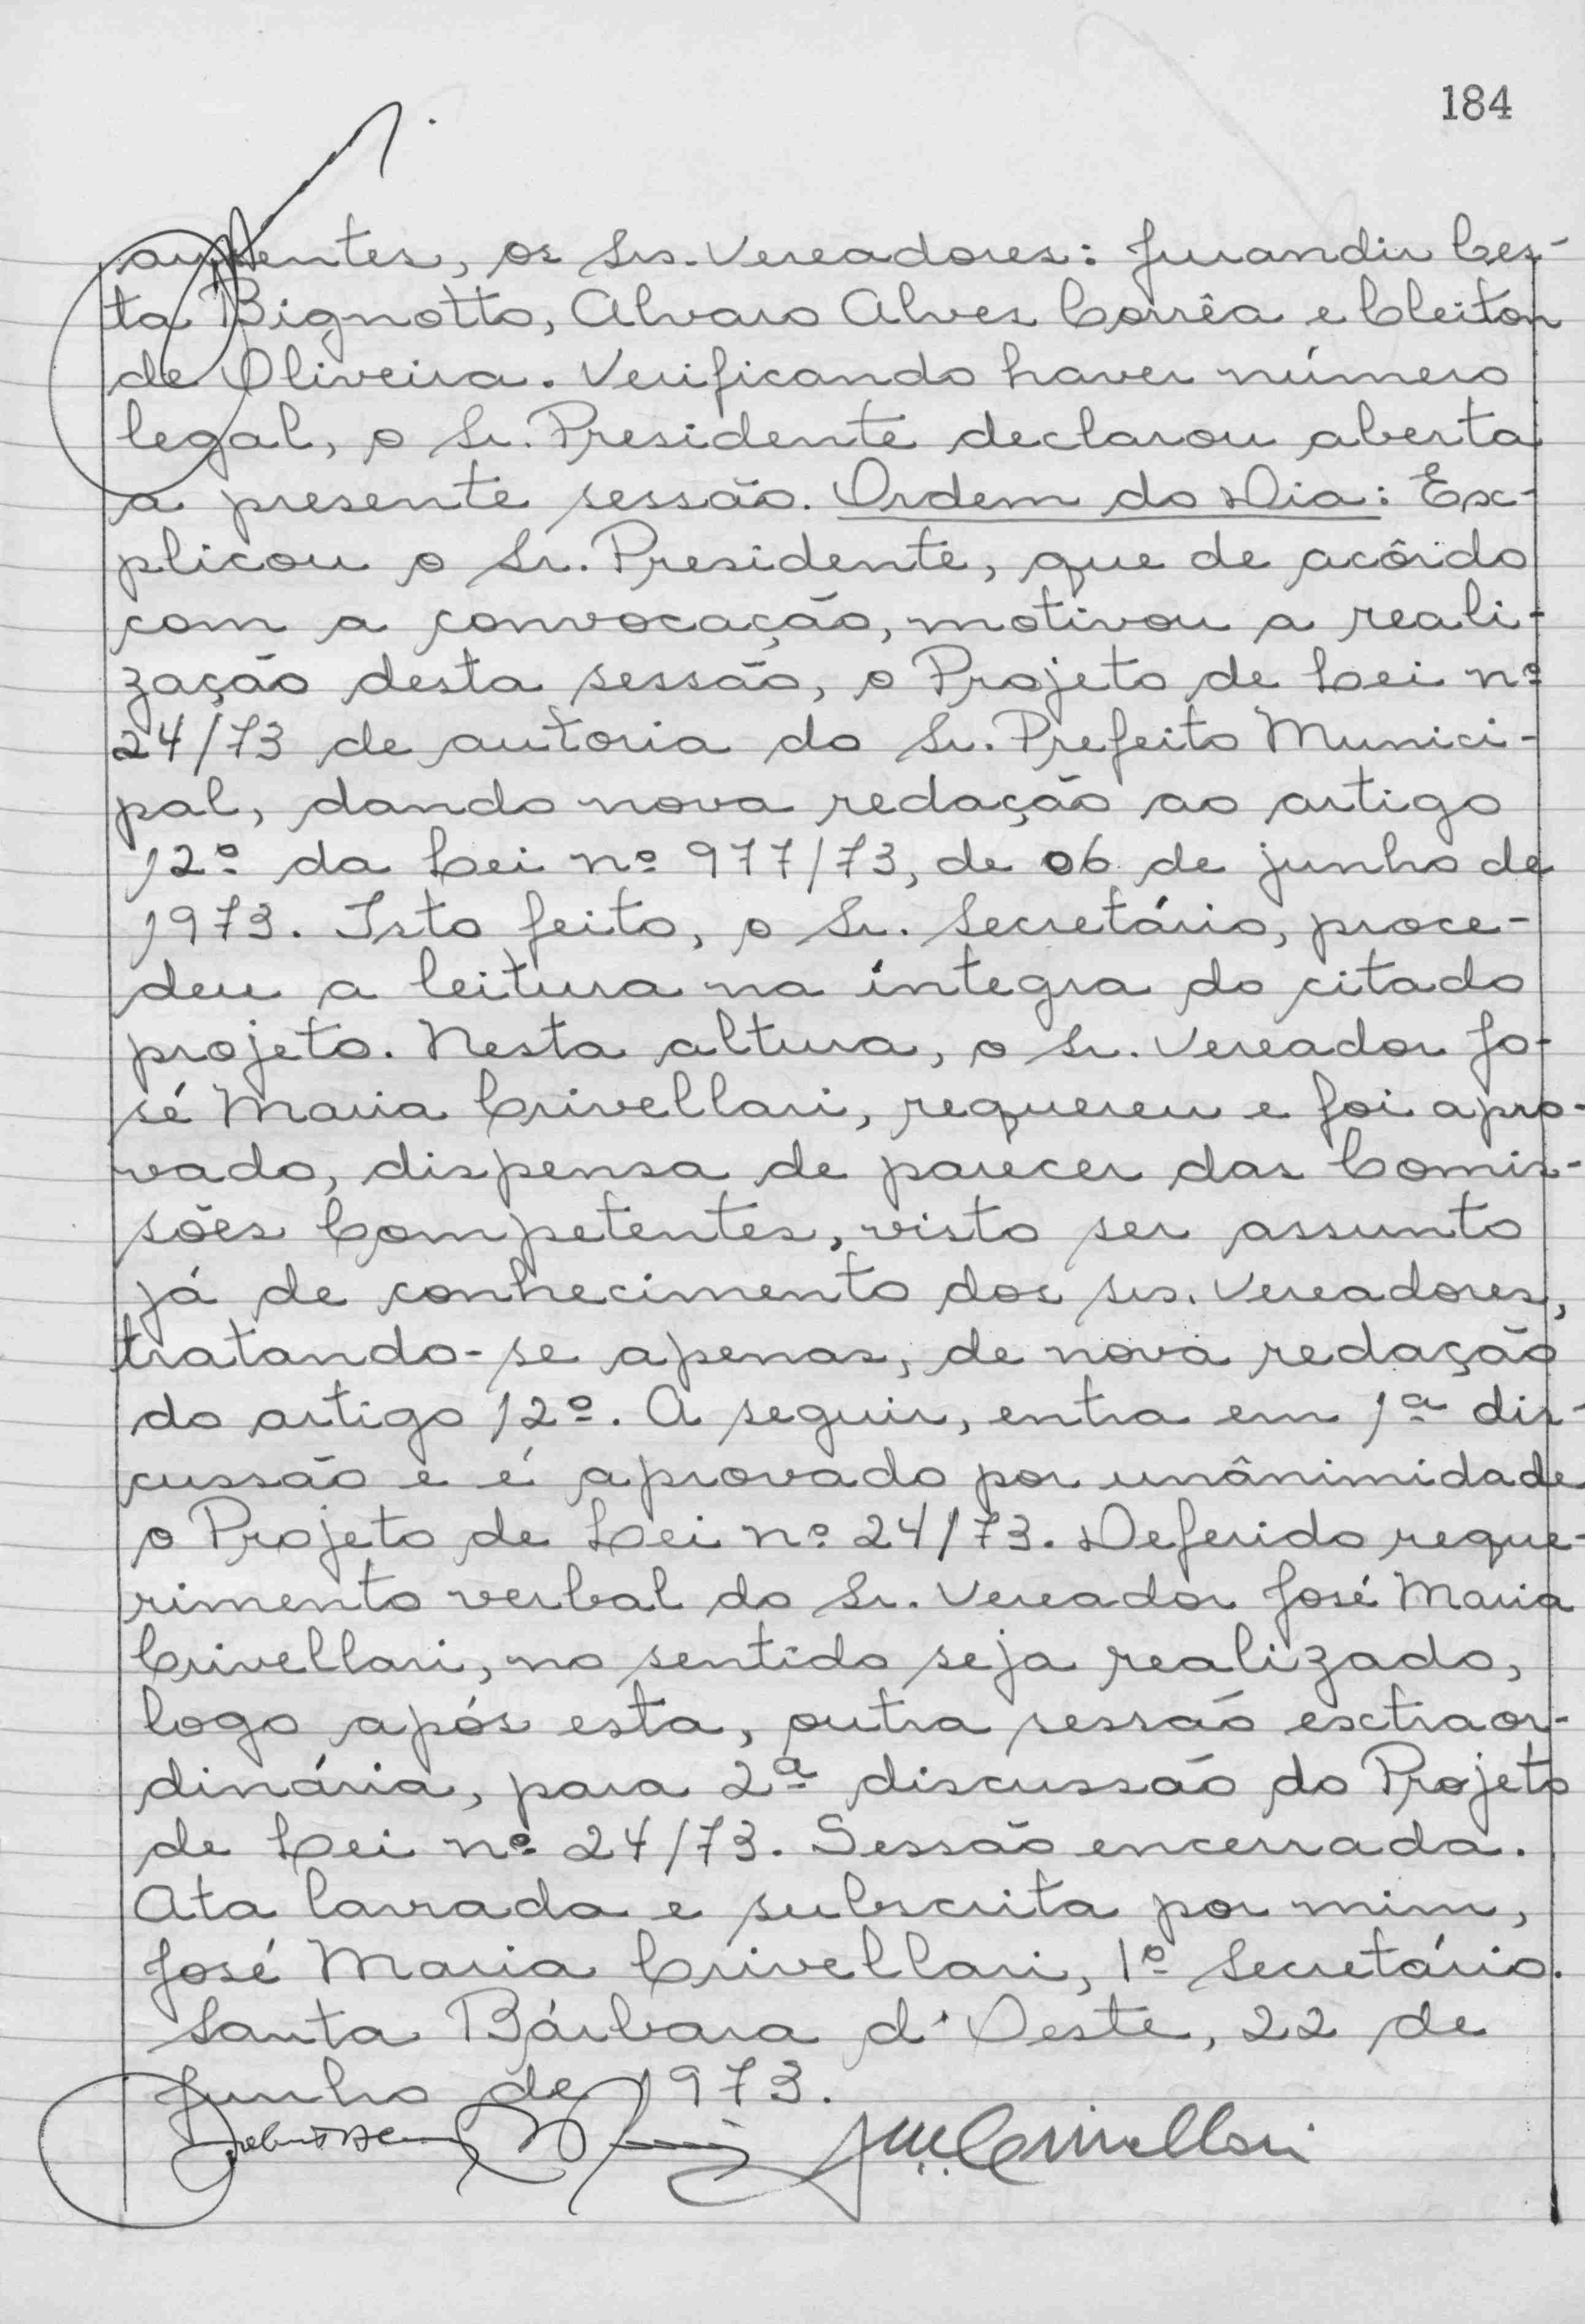 184
ausentes, os Srs. Vereadores: Jurandir Ces-
ta Bignotto, Alvaro Alves Corrêa e Cleiton
de Oliveira. Verificando haver número
legal, o Sr. Presidente declarou aberta
a presente sessão. Ordem do Dia: Ex-
plicou o Sr. Presidente, que de acôrdo
com a convocação, motivou a reali-
zação desta sessão, o Projeto de Lei nº
24/73 de autoria do Sr. Prefeito Munici-
pal, dando nova redação ao artigo
12º da Lei nº 977/73, de 06 de junho de
1973. Isto feito, o Sr. Secretário, proce-
deu a leitura na íntegra do citado
projeto. Nesta altura, o Sr. Vereador Jo-
sé Maria Crivellari, requereu e foi apro-
vado, dispensa de parecer das Comis-
sões Competentes, visto ser assunto
já de conhecimento dos srs. Vereadores,
tratando-se apenas, de nova redação
do artigo 12º. A seguir, entra em 1ª dis-
cussão e é aprovado por unânimidade
o Projeto de Lei nº 24/73. Deferido reque-
rimento verbal do Sr. Vereador José Maria
Crivellari, no sentido seja realizado,
logo após esta, outra sessão extraor-
dinária, para 2ª discussão do Projeto
de Lei nº 24/73. Sessão encerrada.
Ata lavrada e subscrita por mim,
José Maria Crivellari, 1º Secretário.
Santa Bárbara d'Oeste, 22 de
Junho de 1973.
Crivellari